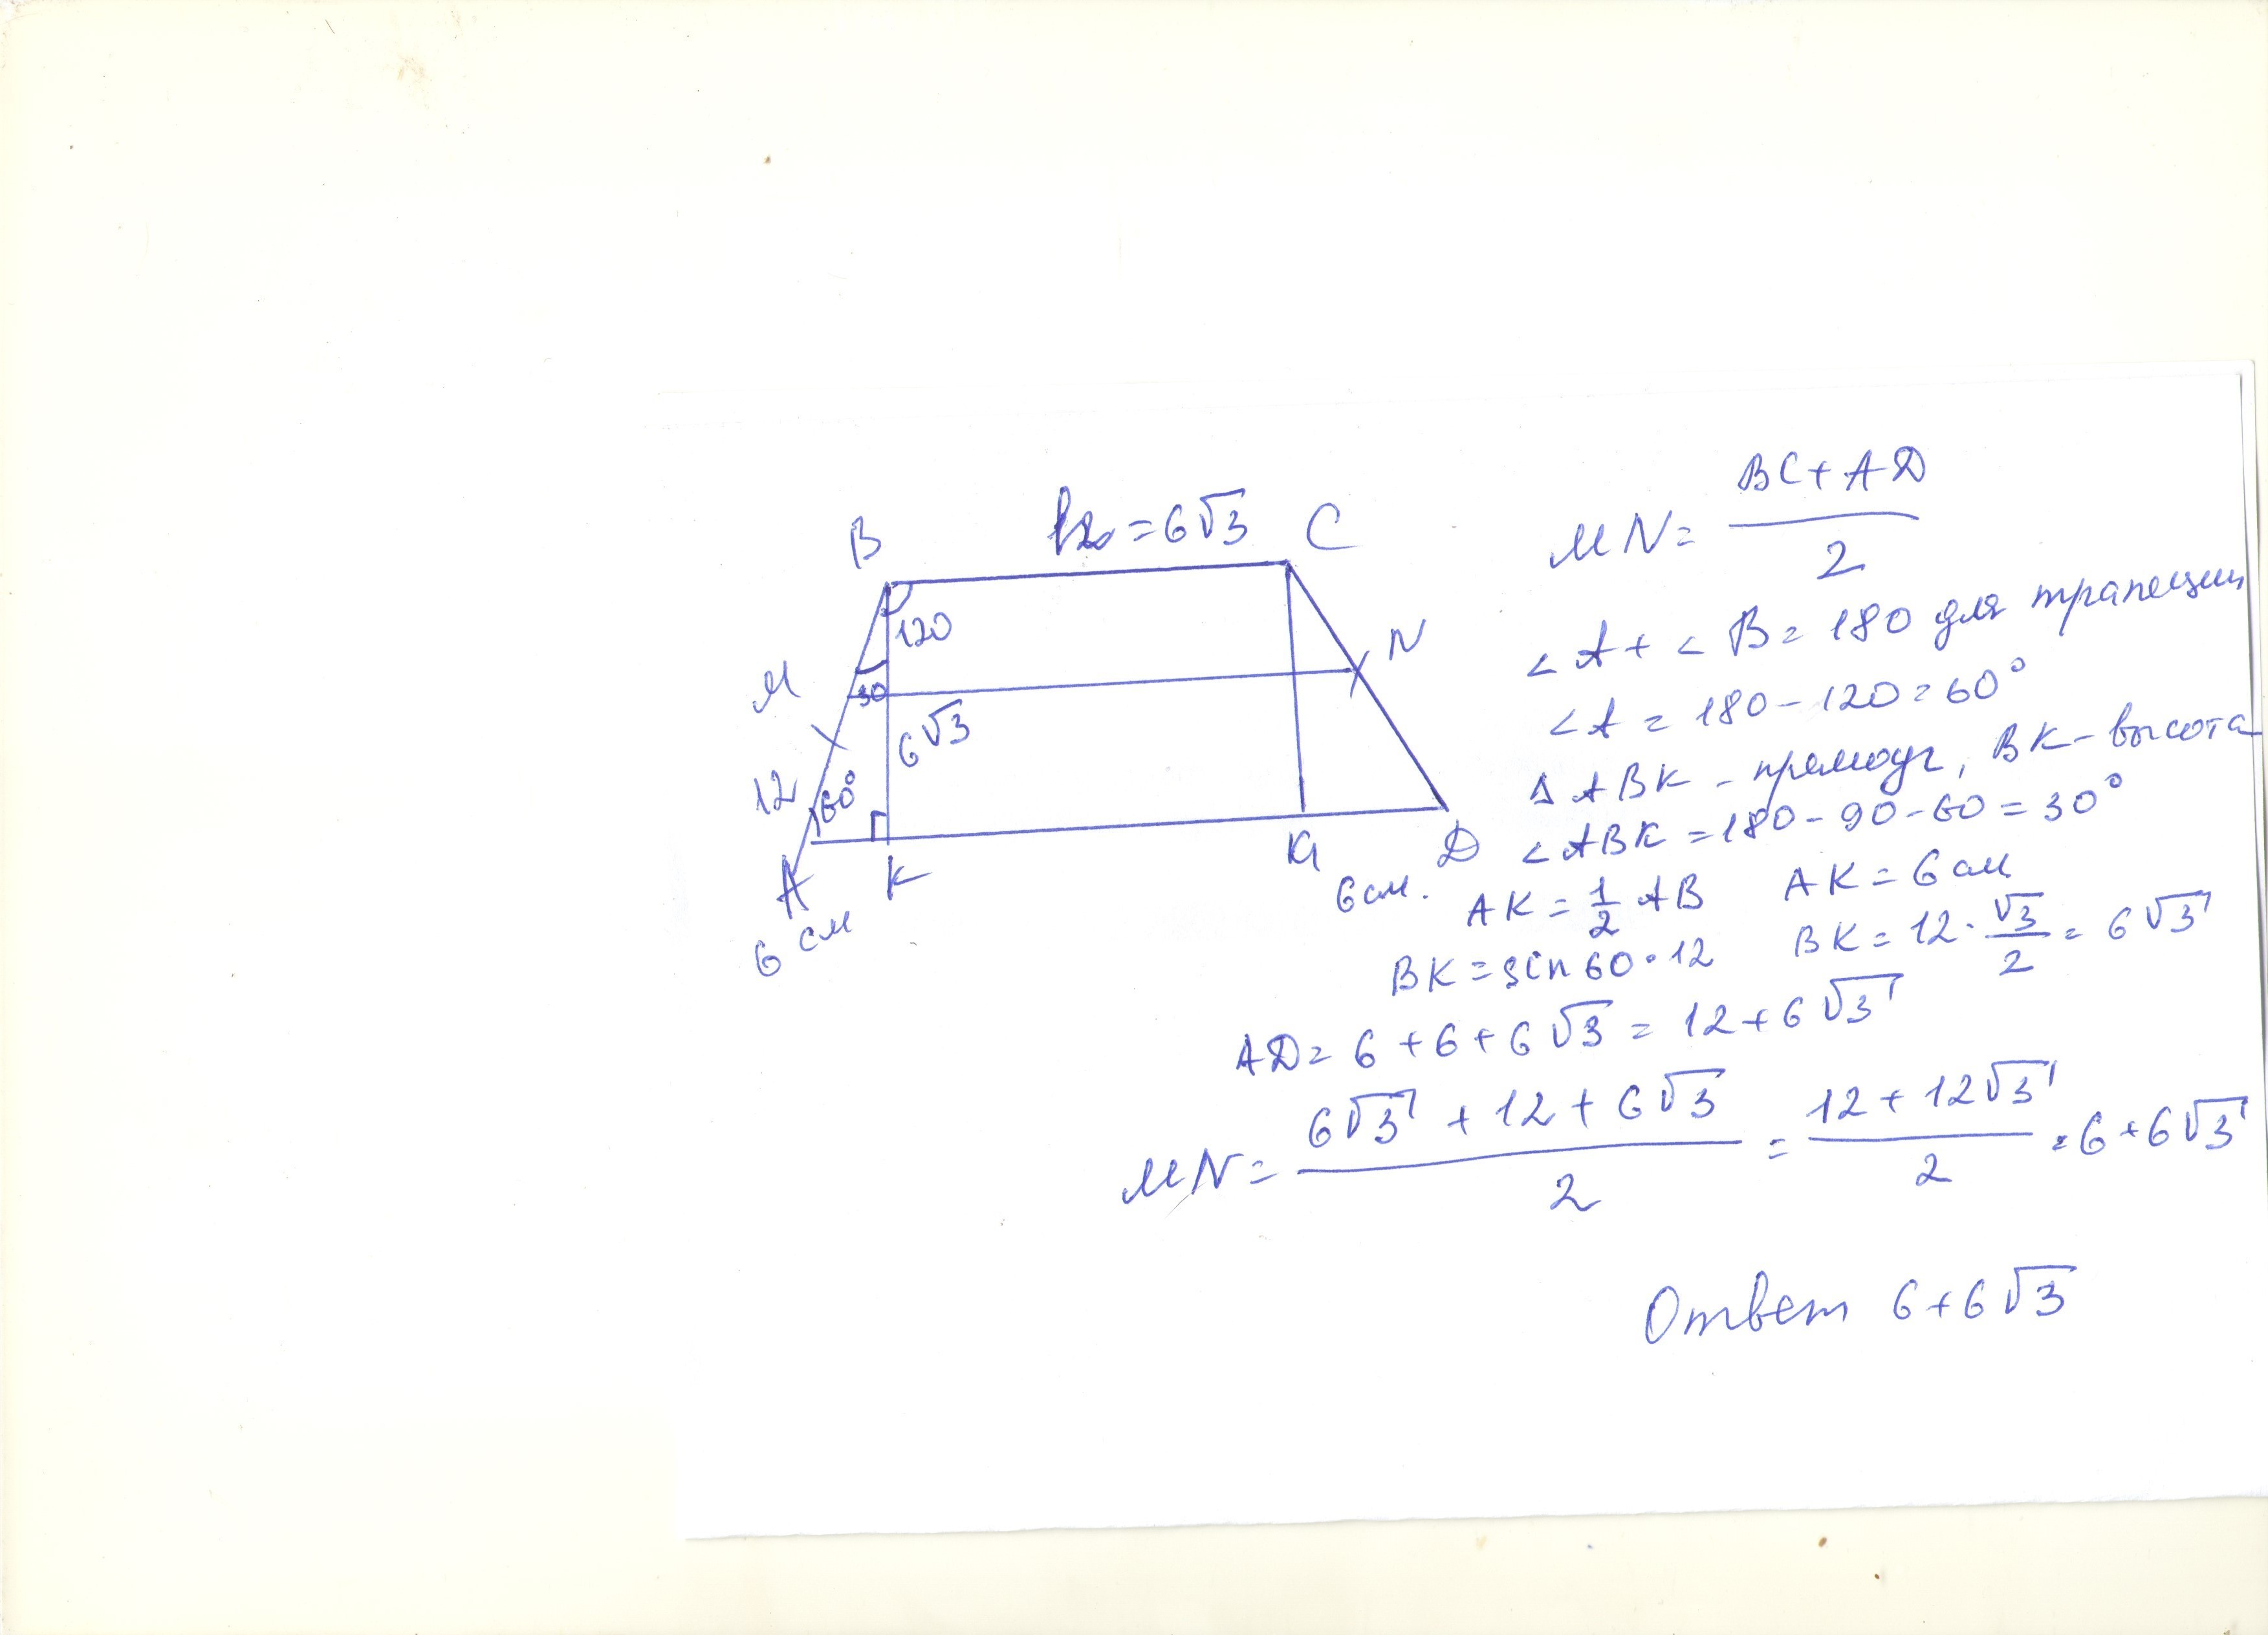 B
= 6√3
C
120
M
30
N
6√3
12
60°
A
K
K1
D
6 см
6 см.
MN = (BC + AD) / 2
∠A + ∠B = 180 для трапеции
∠A = 180 - 120 = 60°
Δ ABK - прямоуг, BK - высота
∠ABK = 180 - 90 - 60 = 30°
AK = 1/2 AB AK = 6 см
BK = sin 60 · 12 BK = 12 · √3/2 = 6√3
AD = 6 + 6 + 6√3 = 12 + 6√3
MN = (6√3 + 12 + 6√3) / 2 = (12 + 12√3) / 2 = 6 + 6√3
Ответ 6 + 6√3